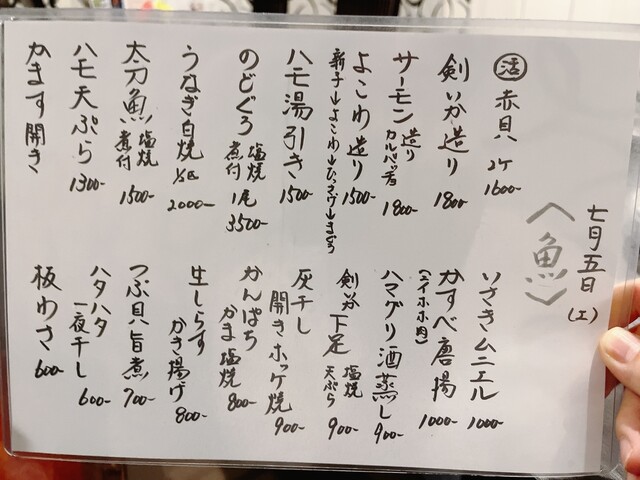 七月五日(土)
〈魚〉
活 赤貝 2ケ 1600-
剣いか造り 1800-
サーモン 造り カルパッチョ 1800-
よこわ造り 1500-
新子→よこわ→ひっさげ→まぐろ
ハモ湯引き 1500-
のどぐろ 塩焼 煮付 1尾 3500-
うなぎ白焼 1/2匹 2000-
太刀魚 塩焼 煮付 1500-
ハモ天ぷら 1300-
かます開き
いさきムニエル 1000-
かすべ唐揚 1000-
(エイホホ肉)
ハマグリ酒蒸し 900-
剣谷下足 塩焼 天ぷら 900-
灰干し 開きホッケ焼 900-
かんぱち かま塩焼 800-
生しらす かき揚げ 800-
つぶ貝旨煮 700-
ハタハタ 一夜干し 600-
板わさ 600-